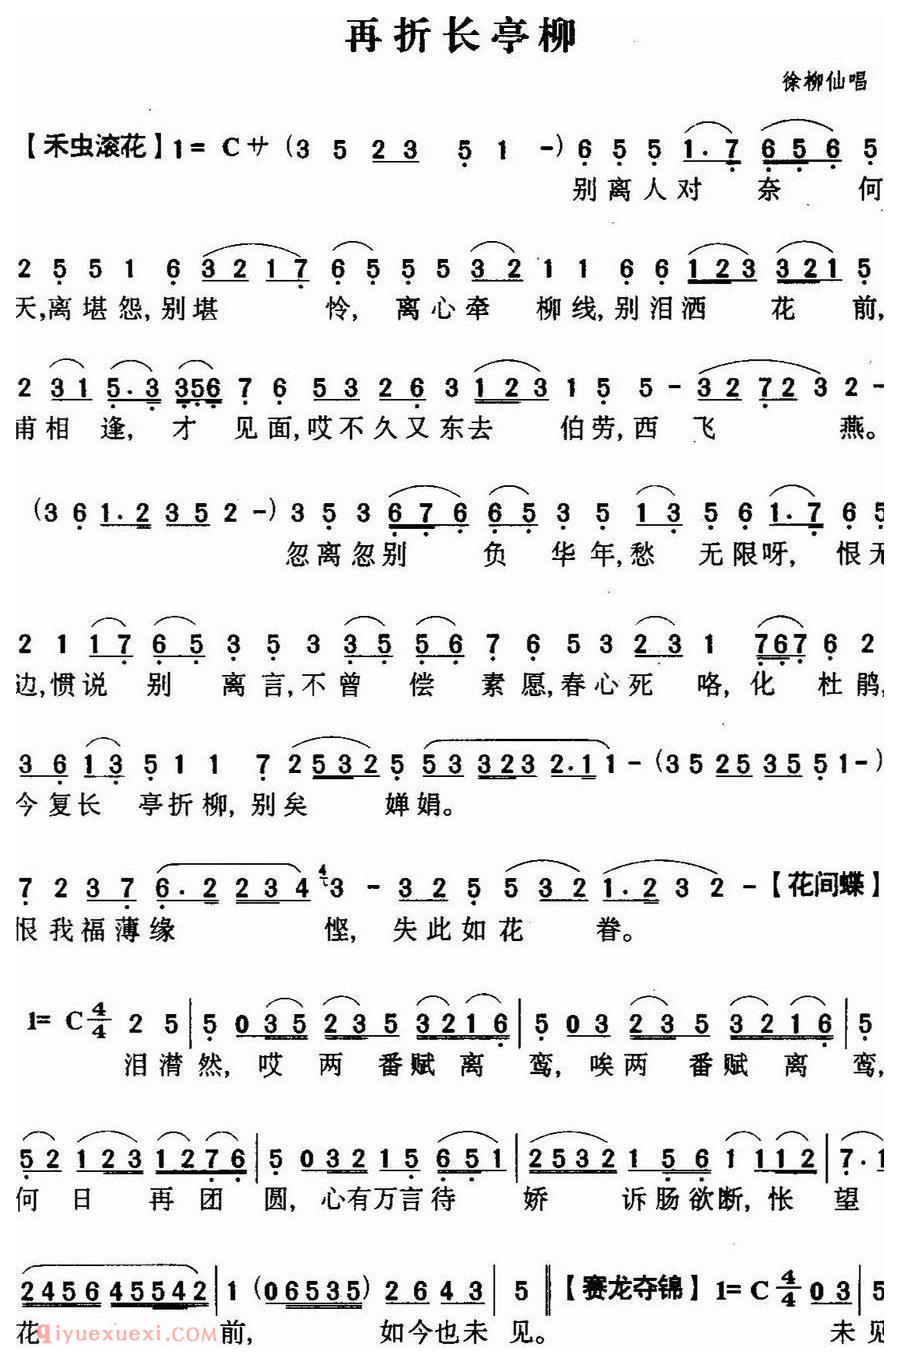 再折长亭柳
徐柳仙唱
【禾虫滚花】1=C サ (3 5 2 3 5 1 -) 6 5 5 1. 7 6 5 6 5
别离人对 奈 何
2 5 5 1 6 3 2 1 7 6 5 5 5 3 2 1 1 6 6 1 2 3 3 2 1 5
天,离堪怨,别堪 怜, 离心牵 柳线,别泪洒 花 前,
2 3 1 5. 3 3 5 6 7 6 5 3 2 6 3 1 2 3 1 5 5 - 3 2 7 2 3 2 -
甫相 逢, 才 见面,哎不久又东去 伯劳,西 飞 燕。
(3 6 1. 2 3 5 2 -) 3 5 3 6 7 6 6 5 3 5 1 3 5 6 1. 7 6 5
忽离忽别 负 华年,愁 无限呀, 恨无
2 1 1 7 6 5 3 5 3 3 5 5 6 7 6 5 3 2 3 1 7 6 7 6 2
边,惯说 别 离言,不曾 偿 素愿,春心死 咯,化 杜鹃,
3 6 1 3 5 1 1 7 2 5 3 2 5 5 3 3 2 3 2. 1 1 - (3 5 2 5 3 5 5 1 -)
今复长 亭折柳,别矣 婵娟。
7 2 3 7 6. 2 2 3 4 4 3 - 3 2 5 5 3 2 1. 2 3 2 - 【花间蝶】
恨我福薄缘 悭, 失此如花 眷。
1=C 4/4 2 5 | 5 0 3 5 2 3 5 3 2 1 6 | 5 0 3 2 3 5 3 2 1 6 | 5
泪潸然,哎 两 番赋 离 鸾,唉两 番赋 离 鸾,
5 2 1 2 3 1 2 7 6 | 5 0 3 2 3 1 5 6 5 1 | 2 5 3 2 1 5 6 1 1 1 2 | 7. 1
何 日 再 团 圆,心有万言待 娇 诉肠欲断,怅 望
2 4 5 6 4 5 5 4 2 | 1 (0 6 5 3 5) 2 6 4 3 | 5 ‖ 【赛龙夺锦】1=C 4/4 0 3 | 5
花 前, 如今也未 见。 未见
qiyuexuexi.com